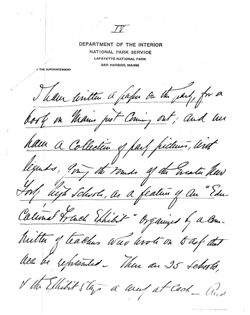 IV
DEPARTMENT OF THE INTERIOR
NATIONAL PARK SERVICE
LAFAYETTE NATIONAL PARK
BAR HARBOR, MAINE
THE SUPERINTENDENT
I have written a paper on the park, for a
book on Maine just coming out; and we
have a Collection of park pictures, with
legends, going the rounds of the Greater New
York High Schools, as a feature of an "Edu-
cational French Exhibit" organized by a Com-
mittee of teachers who wrote to ask that
we be represented. There are 25 schools,
& the Exhibit stays a week at each — And